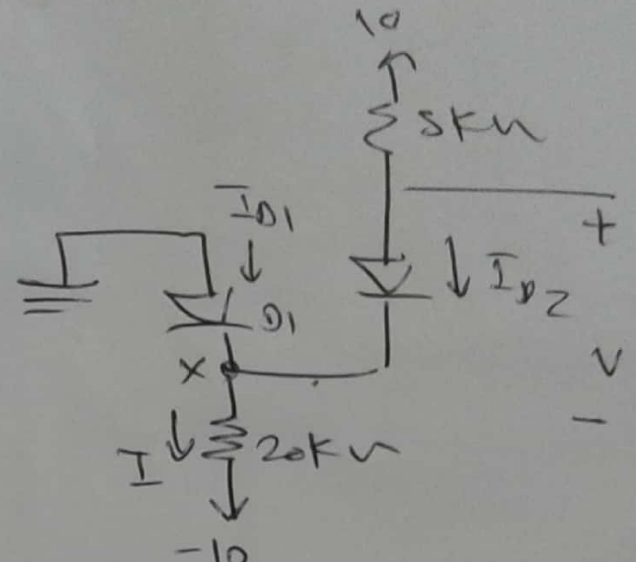 10
5KΩ
ID1
+
ID2
D1
X
V
I
20KΩ
-
-10